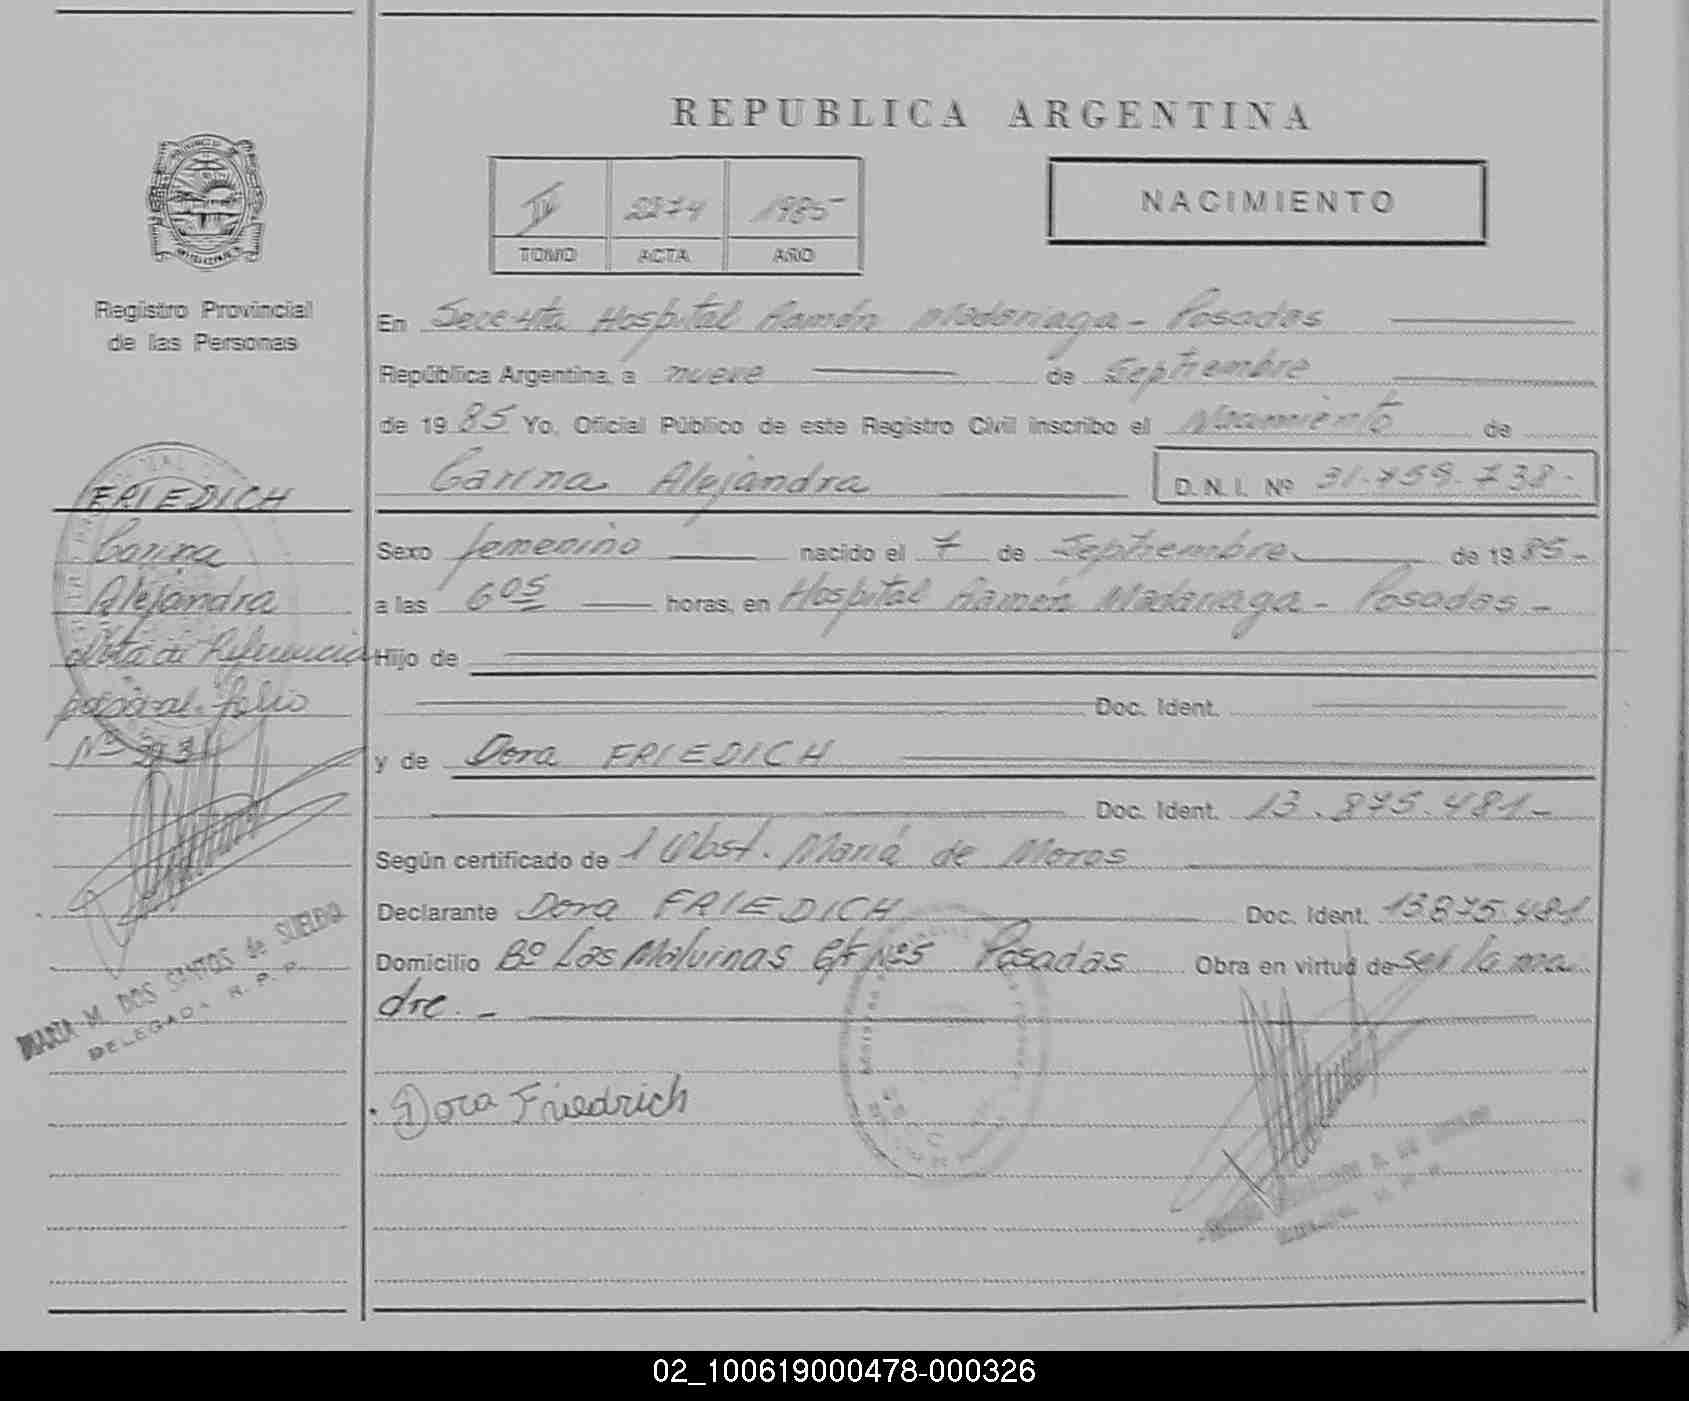 REPUBLICA ARGENTINA
IV 2274 1985
TOMO ACTA AÑO
NACIMIENTO
Registro Provincial
de las Personas
En Hospital Ramón Madariaga - Posadas
República Argentina, a nueve de Septiembre
de 1985 Yo, Oficial Público de este Registro Civil inscribo el Nacimiento de
Carina Alejandra D.N.I. Nº 31.759.738.-
Sexo femenino nacido el 7 de Septiembre de 1985.-
a las 6 05 horas, en Hospital Ramón Madariaga - Posadas.-
Hijo de
Doc. Ident.
y de Dora FRIEDICH
Doc. Ident. 13.875.481-
Según certificado de Obst. María de Moras
Declarante Dora FRIEDICH Doc. Ident. 13.875.481
Domicilio Bº Las Malvinas Nº5 Posadas Obra en virtud de ser la ma
dre.-
Dora Friedrich
FRIEDICH
Carina
Alejandra
Nota de Referencia
pasa al folio
Nº
MARIA M. DOS SANTOS de SUELDO
DELEGADA R. P. P.
02_100619000478-000326